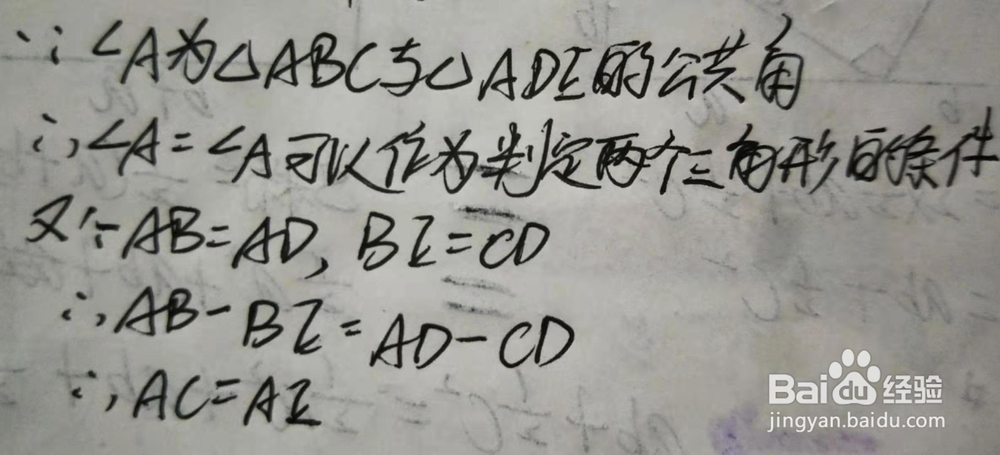 ∵∠A为△ABC与△ADE的公共角
∴∠A=∠A可以作为判定两个三角形的条件
又∵AB=AD,BE=CD
∴AB-BE=AD-CD
∴AC=AE
Baidu经验
jingyan.baidu.com